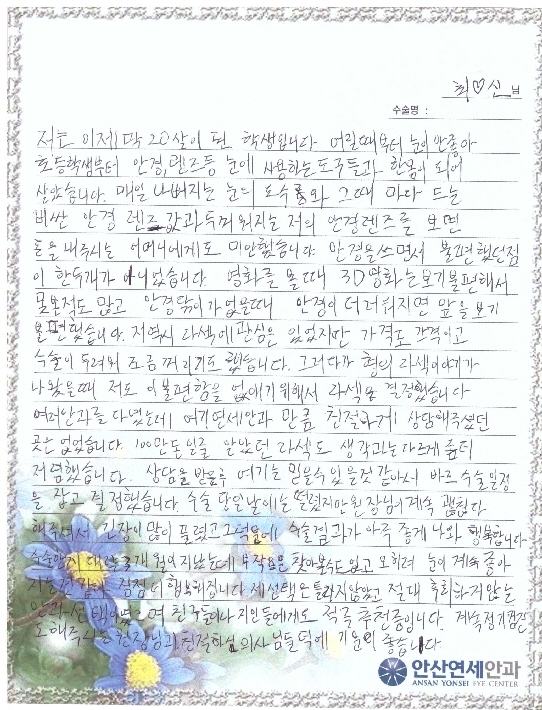 최♡신 님
수술명 :
저는 이제 막 20살이 된 학생입니다 어릴때부터 눈이 안좋아
초등학생부터 안경, 렌즈등 눈에 사용하는 도구들과 한몸이 되어
살았습니다. 매일 나빠지는 눈의 도수와 그때 마다 드는
비싼 안경 렌즈 값과 두꺼워지는 저의 안경렌즈를 보면
돈을 내주시는 어머니에게도 미안했습니다. 안경을쓰면서 불편했던점
이 한두개가 아니었습니다. 영화를 볼때 3D영화는보기불편해서
못본적도 많고 안경닦이가 없을때 안경이 더러워지면 앞을 보기
불편했습니다. 저역시 라섹에 관심은 있었지만 가격도 가격이고
수술이 두려워 조금 꺼리기도 했습니다. 그러다가 형의 라섹이야기가
나왔을때 저도 이불편함을 없애기위해서 라섹을 결정했습니다
여러안과를 다녔는데 여기연세안과 만큼 친절하게 상담해주셨던
곳은 없었습니다. 100만돈일줄 알았던 라섹도 생각과는다르게 좀더
저렴했습니다. 상담을 받을후 여기는 믿을수 있을것 같아서 바로 수술일정
을 잡고 결정했습니다. 수술 당일날에는 떨렸지만 원장님이 계속 괜찮다
해주셔서 긴장이 많이 풀렸고 그덕분에 수술결과가 아주 좋게 나와 행복합니다
수술한지 대략 개월이 지났는데 부작용은 찾아볼수도없고 오히려 눈이 계속 좋아
지는것 같아 점점더 행복해집니다 제선택은 틀리지않았고 절대 후회하지않는
안과선택이였으며 친구들이나 지인들에게도 적극 추천중입니다. 계속정기검진
도해주시는 원장님과 친절하신 의사님들덕에 기분이 좋습니다
안산연세안과
ANSAN YONSEI EYE CENTER